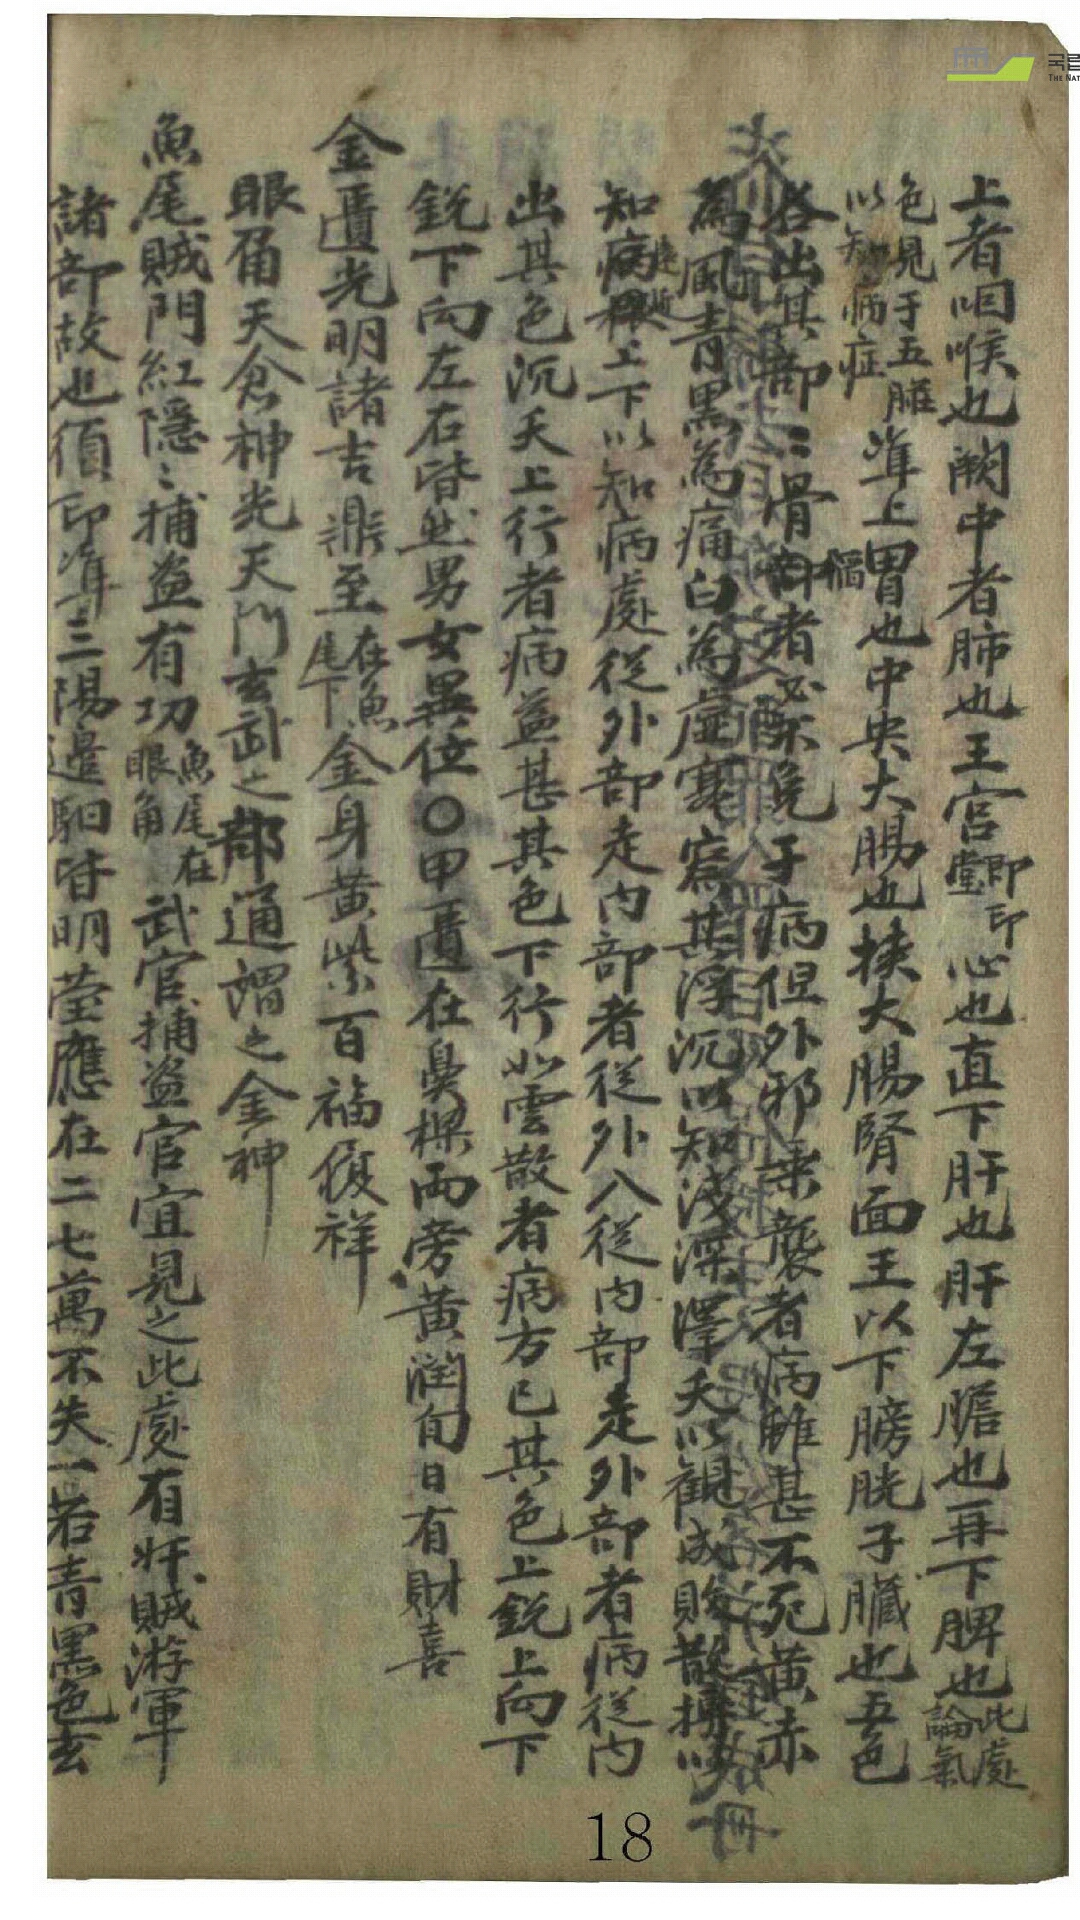 上者咽喉也闕中者肺也王宮
即印
堂
心也直下肝也肝左膽也再下脾也
此處
論氣
色見于五臟
以知病症
準上胃也中央大腸也挾大腸腎面王以下膀胱子臟也五色
各出其部部骨陷者必不免于病但外邪乘襲者病雖甚不死黃赤
為風青黑為痛白為虛寒察其浮沉以知淺深澤夭以觀成敗散摶以
知病上下以知病處從外部走內部者從外入從內部走外部者病從內
出其色沉夭上行者病益甚其色下行如雲散者病方已其色上銳上向下
銳下向左右皆然男女異位○甲匱在鼻樑兩旁黃潤旬日有財喜
金匱光明諸吉鼎至
在魚
尾下
金身黃紫百福復祥
眼角天倉神光天門玄武之部通謂之金神
魚尾賊門紅隱隱捕盜有功
魚尾在
眼角
武官捕盜官宜見之此處有奸賊游軍
諸部故也須印準三陽邊馹皆明瑩應在二七萬不失一若青黑色玄
18
국립
THE NAT